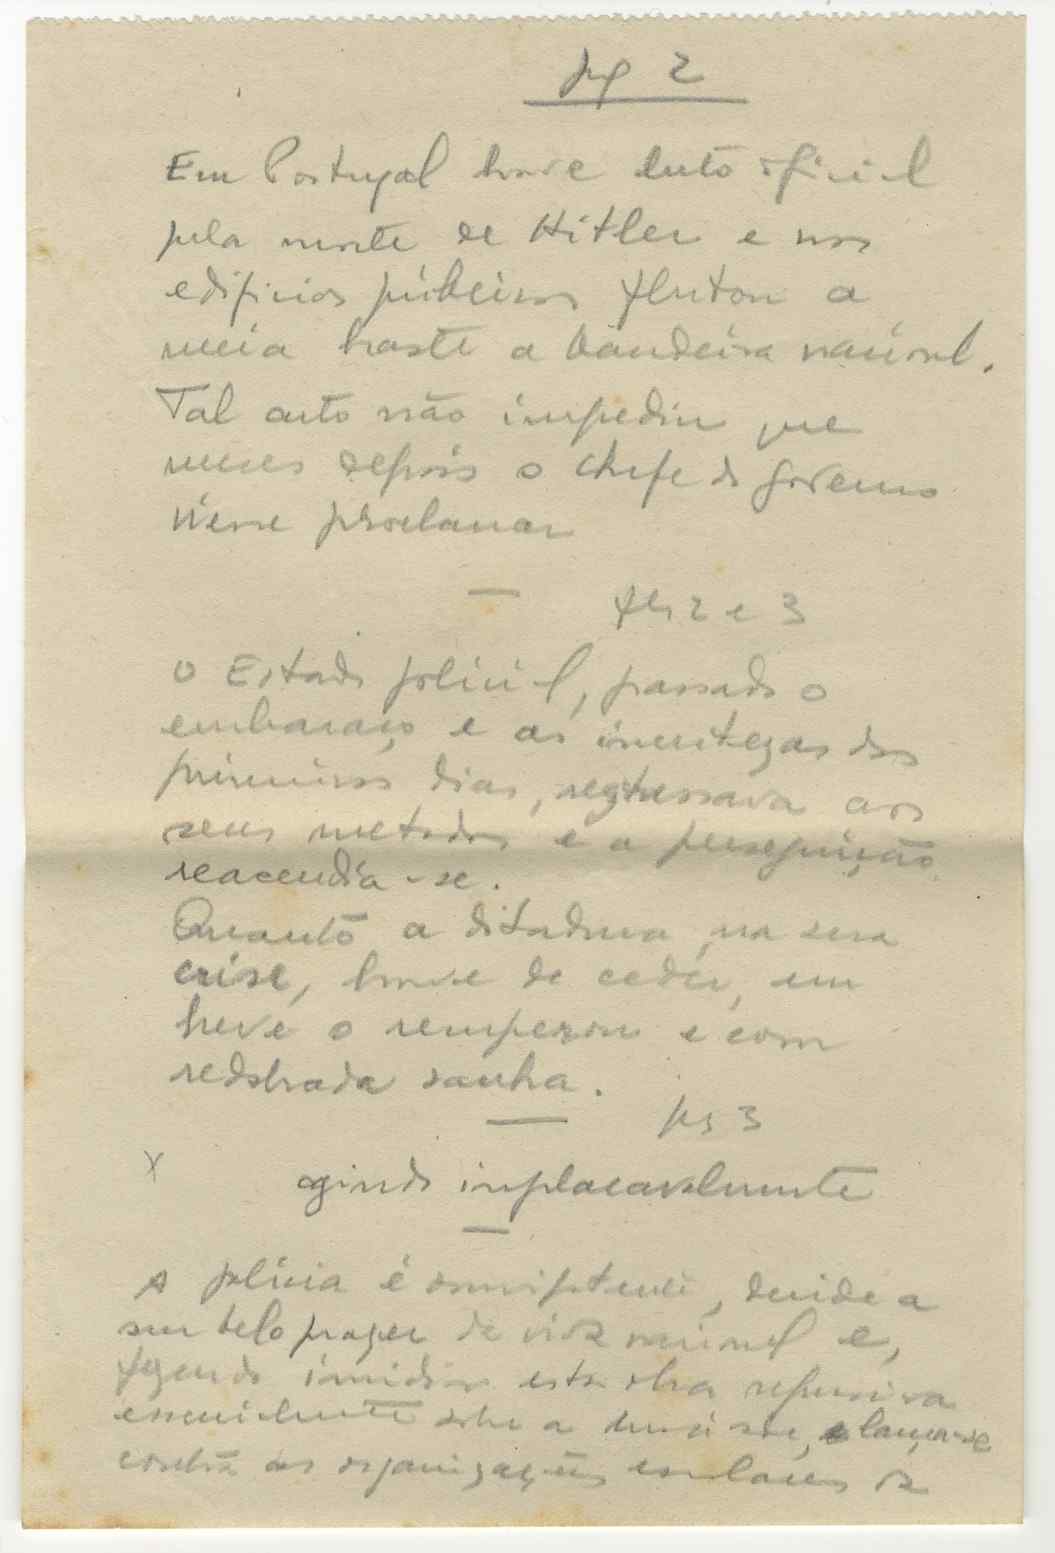 pg 2
Em Portugal houve luto oficial
pela morte de Hitler e nos
edificios públicos flutou a
meia haste a bandeira nacional.
Tal acto não impediu que
meses depois o chefe do governo
viesse proclamar
—
fls 2 e 3
O Estado policial, passado o
embaraço e as incertezas dos
primeiros dias, regressava aos
seus metodos e a perseguição
reacendia-se.
Quanto a ditadura, na sua
crise, houve de ceder, em
breve o recuperou e com
redobrada sanha.
—
pg 3
x
agindo implacavelmente
—
A policia é omnipotente, decide a
seu belo prazer da vida nacional e,
fazendo incidir esta obra repressiva
essencialmente sobre a , lança-se
contra as organizações escolares da